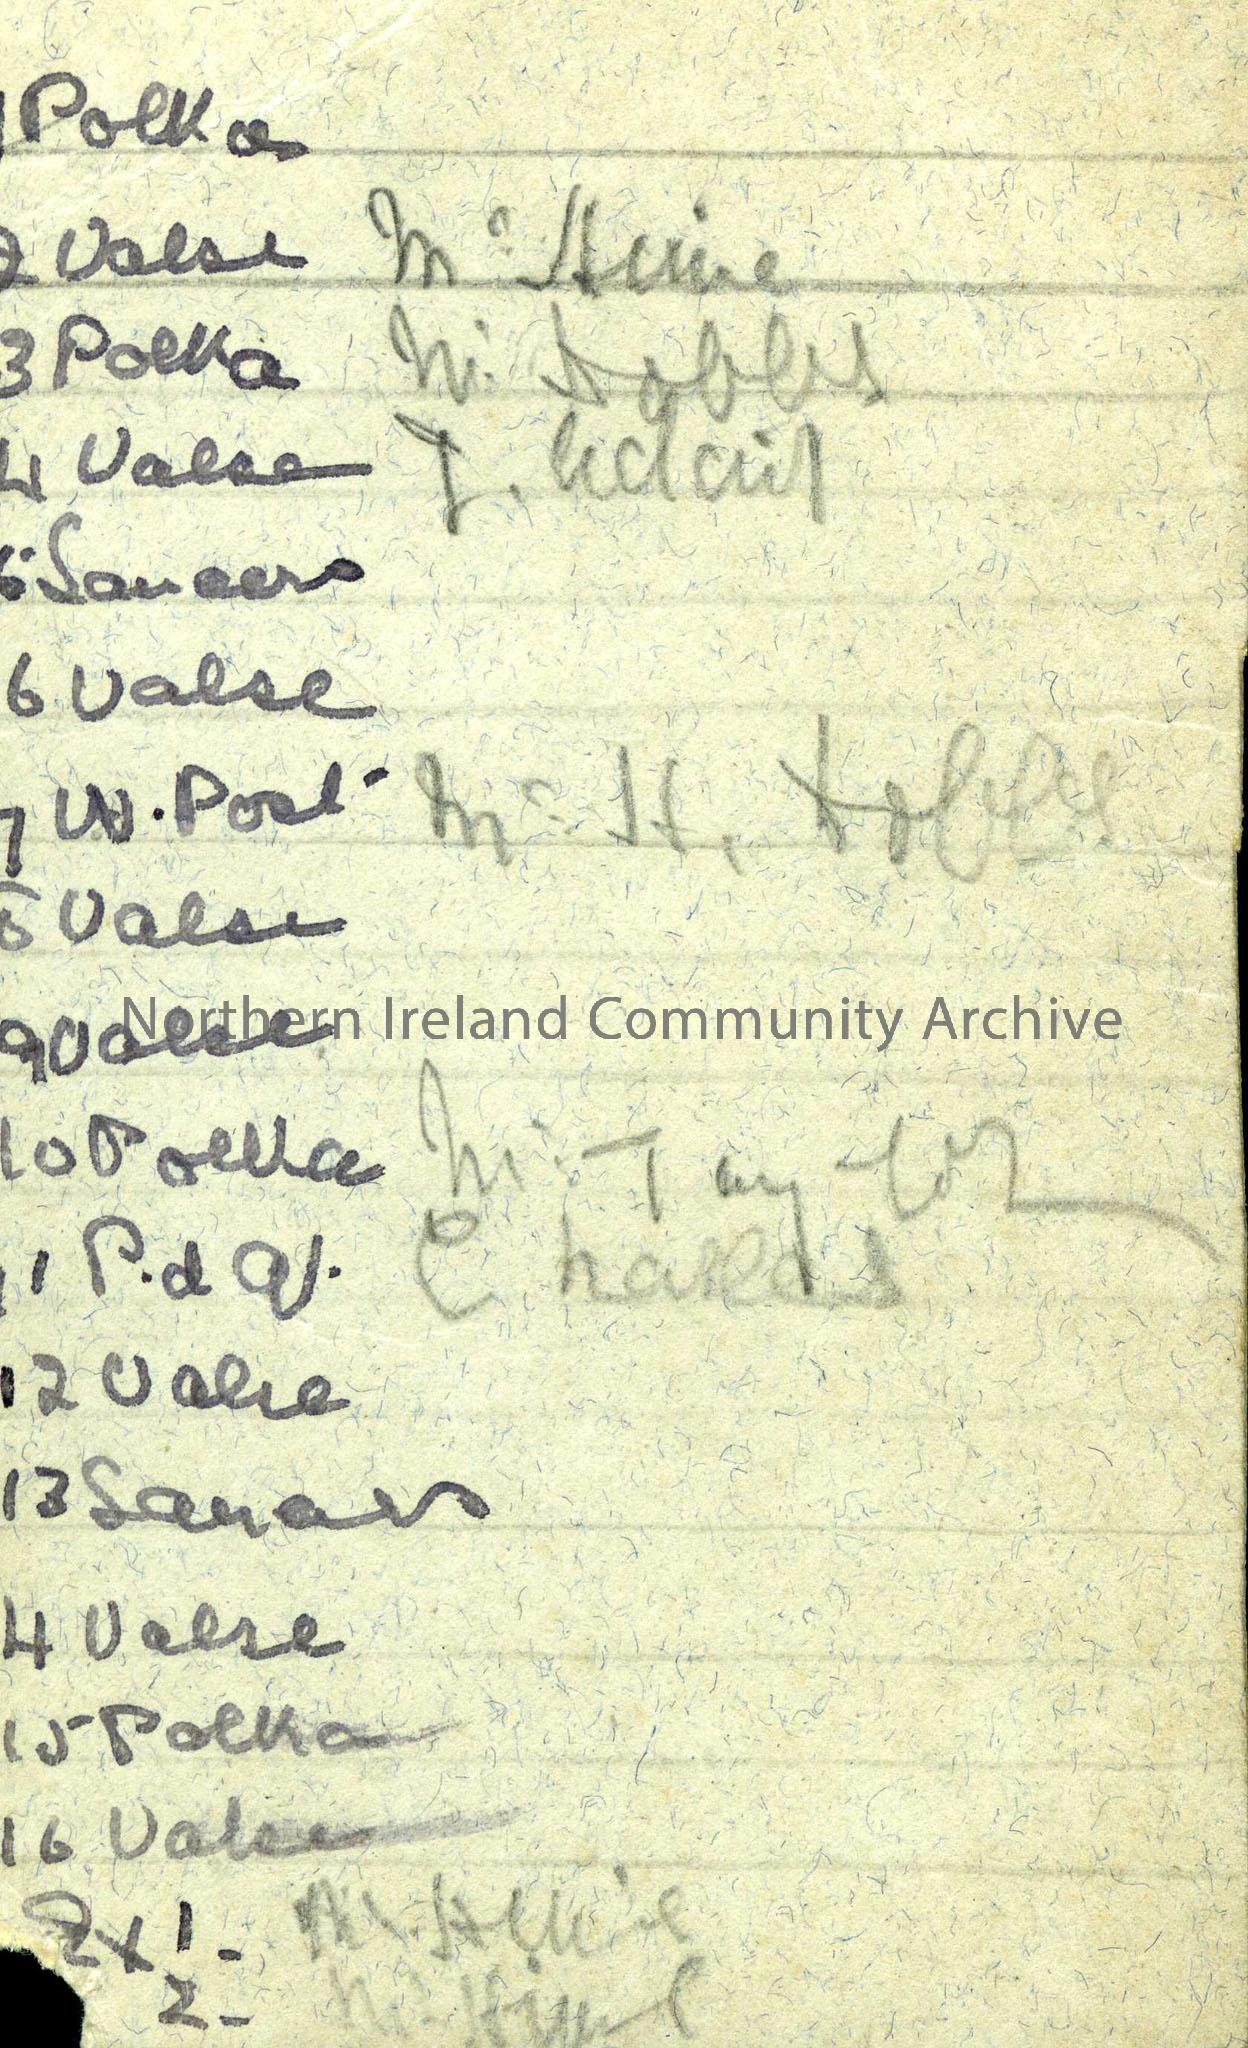 1 Polka
2 Valse Mr Hine
3 Polka Mr Hobbs
4 Valse J. Adair
5 Lancers
6 Valse
7 W. Post Mr H. Hobbs
8 Valse
Northern Ireland Community Archive
9 Valse
10 Polka Mr Taylor
11 P. d Q. Charles
12 Valse
13 Lancers
4 Valse
15 Polka
16 Valse
Ex 1-
2-